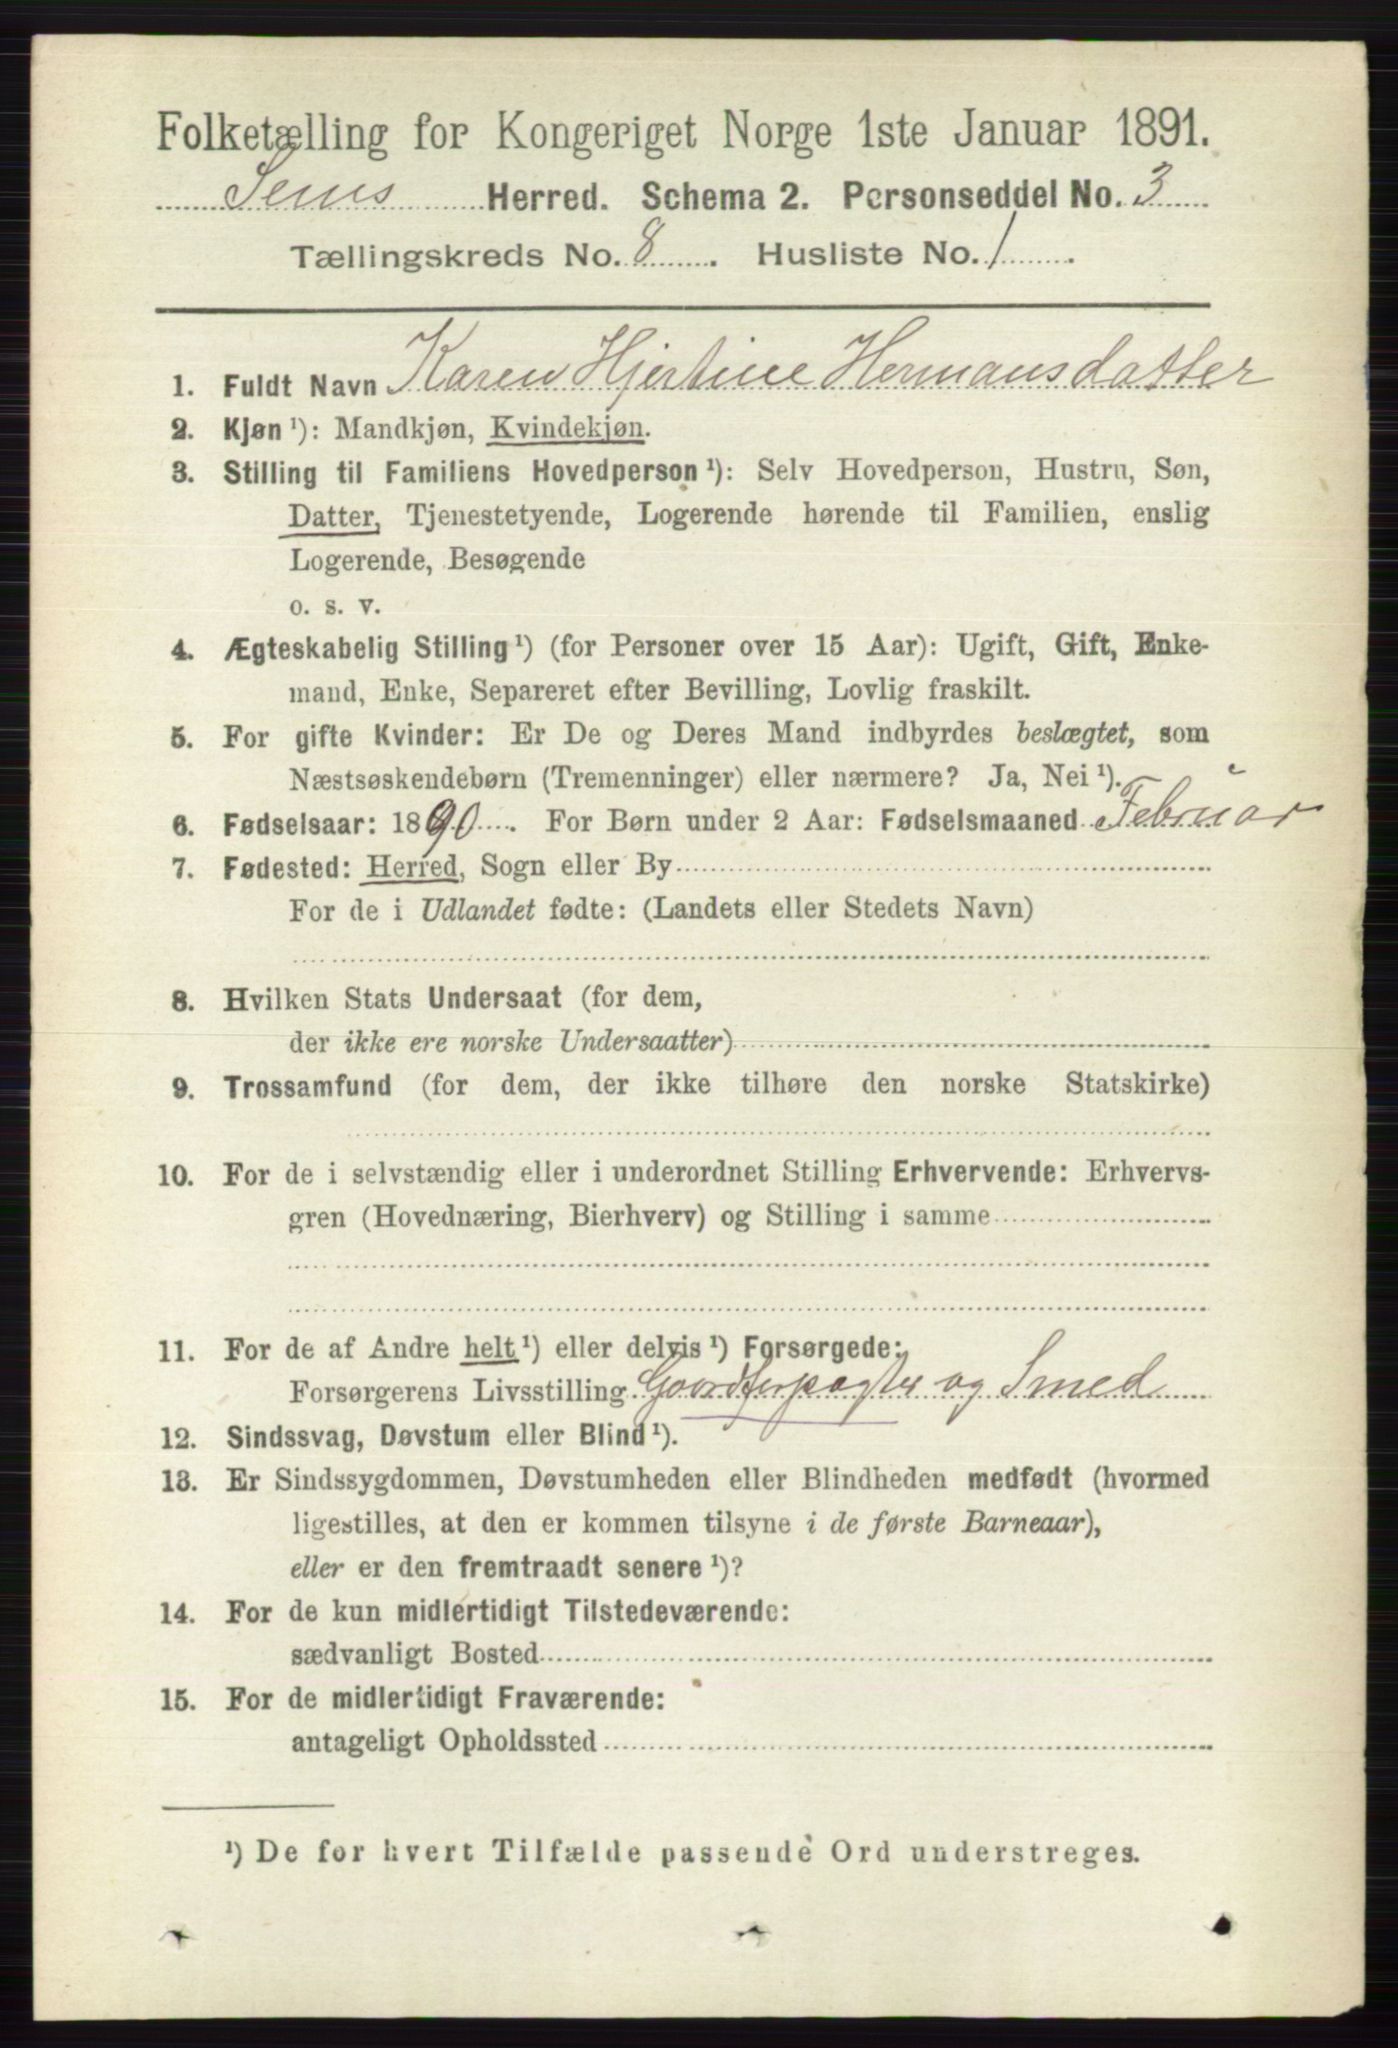 Folketælling for Kongeriget Norge 1ste Januar 1891.
Sems Herred. Schema 2. Personseddel No. 3
Tællingskreds No. 8. Husliste No. 1.
1. Fuldt Navn Karen Hjertine Hermansdatter
2. Kjøn ¹): Mandkjøn, Kvindekjøn.
3. Stilling til Familiens Hovedperson ¹): Selv Hovedperson, Hustru, Søn,
Datter, Tjenestetyende, Logerende hørende til Familien, enslig
Logerende, Besøgende
o. s. v.
4. Ægteskabelig Stilling ¹) (for Personer over 15 Aar): Ugift, Gift, Enke-
mand, Enke, Separeret efter Bevilling, Lovlig fraskilt.
5. For gifte Kvinder: Er De og Deres Mand indbyrdes beslægtet, som
Næstsøskendebørn (Tremenninger) eller nærmere? Ja, Nei ¹).
6. Fødselsaar: 1890. For Børn under 2 Aar: Fødselsmaaned Februar
7. Fødested: Herred, Sogn eller By
For de i Udlandet fødte: (Landets eller Stedets Navn)
8. Hvilken Stats Undersaat (for dem,
der ikke ere norske Undersaatter)
9. Trossamfund (for dem, der ikke tilhøre den norske Statskirke)
10. For de i selvstændig eller i underordnet Stilling Erhvervende: Erhvervs-
gren (Hovednæring, Bierhverv) og Stilling i samme
11. For de af Andre helt ¹) eller delvis ¹) Forsørgede:
Forsørgerens Livsstilling Gaardforpagter og Smed
12. Sindssvag, Døvstum eller Blind ¹).
13. Er Sindssygdommen, Døvstumheden eller Blindheden medfødt (hvormed
ligestilles, at den er kommen tilsyne i de første Barneaar),
eller er den fremtraadt senere ¹)?
14. For de kun midlertidigt Tilstedeværende:
sædvanligt Bosted
15. For de midlertidigt Fraværende:
antageligt Opholdssted
¹) De for hvert Tilfælde passende Ord understreges.